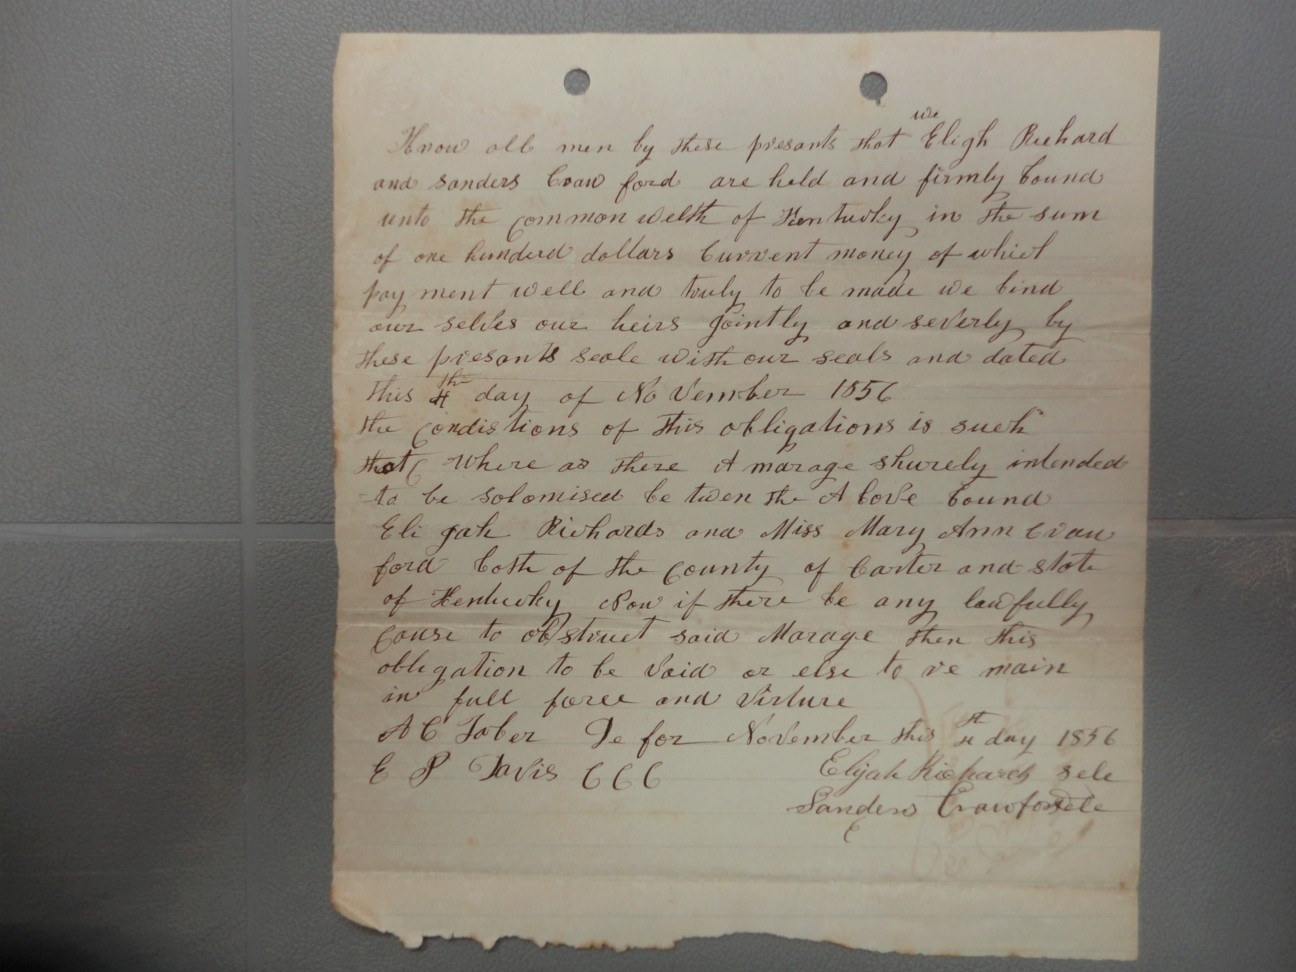 we
Know all men by these presants that Eligh Richard
and sanders Craw ford are held and firmly bound
unto the common welth of Kentucky in the sum
of one hunderd dollars Current money of which
pay ment well and truly to be made we bind
our selves our heirs jointly and severly by
these presants seale with our seals and dated
this 4th day of No Vember 1856
the condistions of this obligations is such
that Where as there A marage shurely intended
to be solomised be twen the A bove bound
Eli gah Richards and Miss Mary Ann Craw
ford both of the County of Carter and state
of Kentucky Now if there be any lawfully
couse to obstruct said Marage then this
obligation to be Void or else to re main
in full force and Virture
A C Tober De for November this 4th day 1856
E P Davis C C C Elijah Richards sele
Sanders Crawford sele